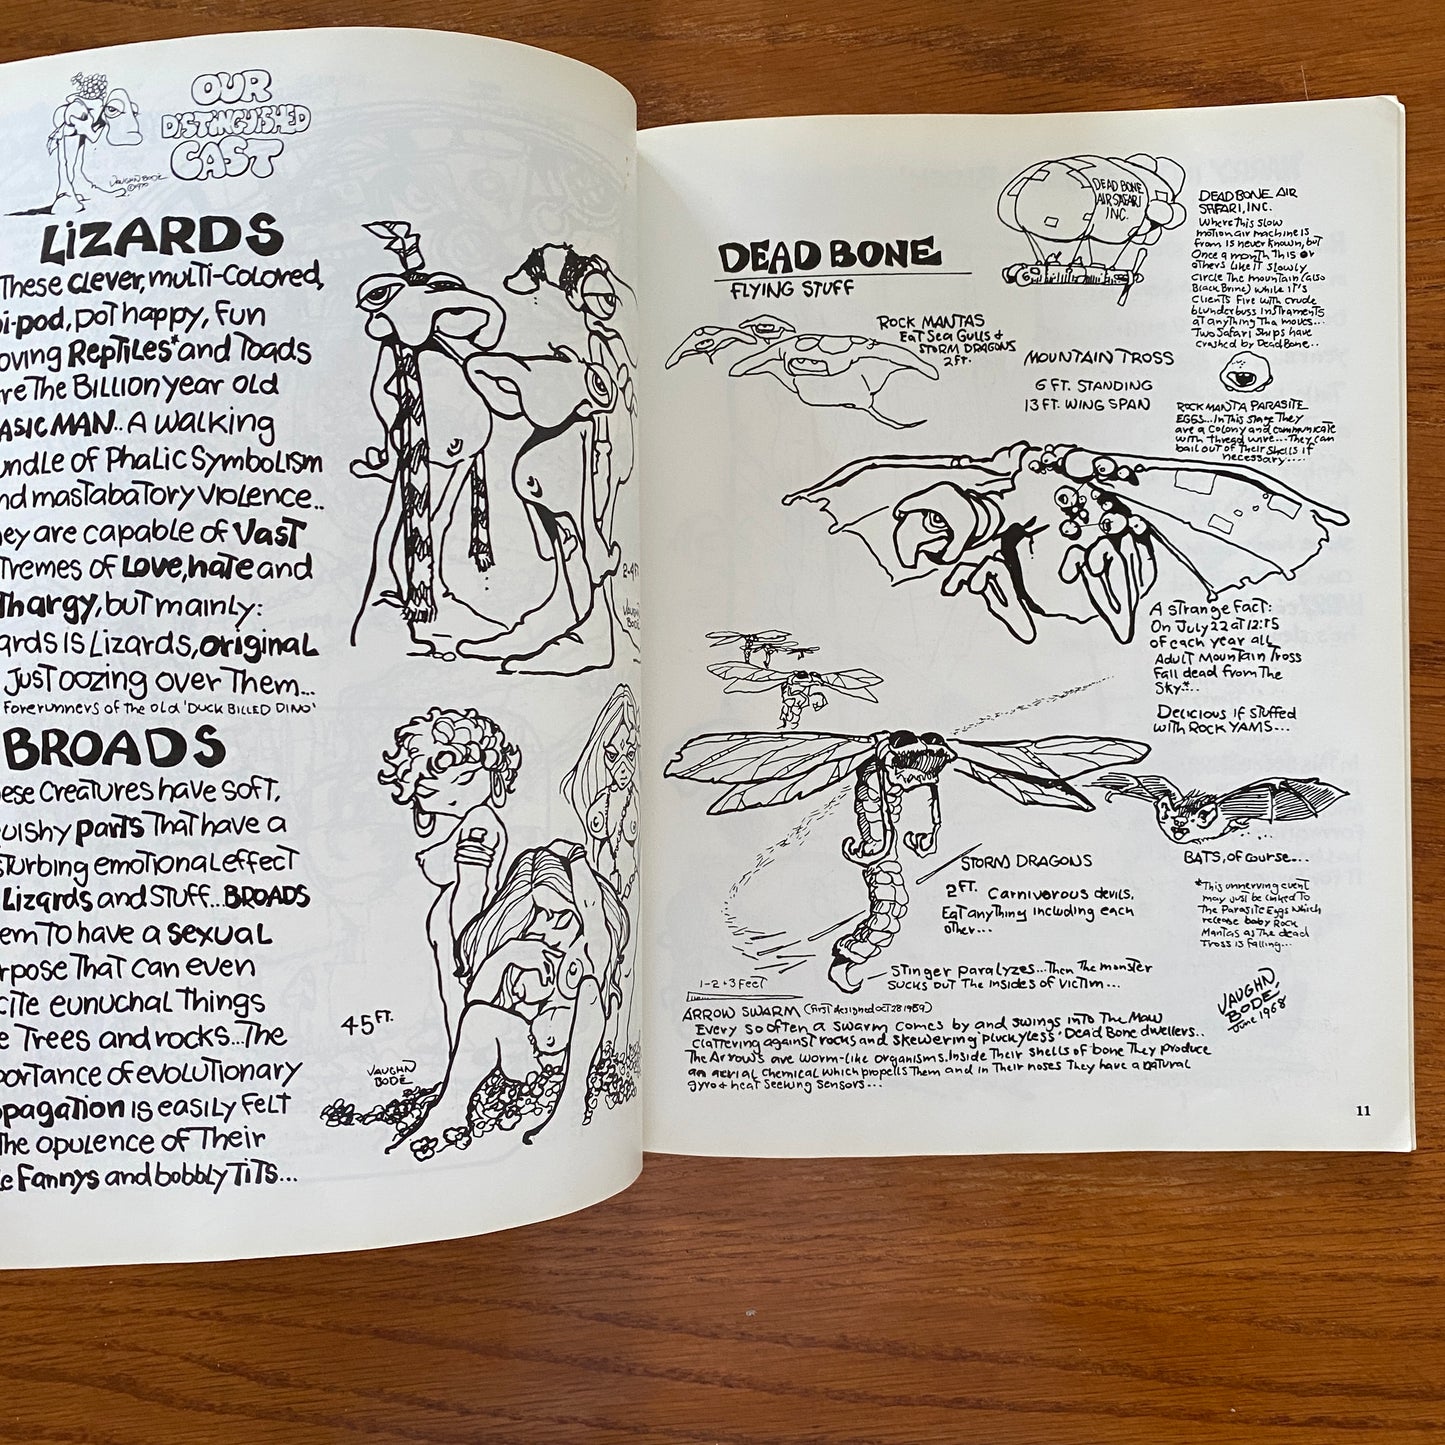 OUR
DISTINGUISHED
CAST
VAUGHN BODĒ
©1970
LIZARDS
These clever, multi-colored,
bi-pod, pot happy, fun
loving Reptiles* and Toads
are The Billion year old
BASIC MAN.. A walking
bundle of Phalic Symbolism
and mastabatory violence..
They are capable of Vast
Tremes of Love, hate and
Thargy, but mainly:
ards is Lizards, original
Just oozing over Them...
Forerunners of the old 'DUCK BILLED DINO'
2-4 FT.
VAUGHN
BODĒ
BROADS
These Creatures have soft,
quishy parts That have a
sturbing emotional effect
Lizards and Stuff... BROADS
em To have a sexual
rpose That can even
cite eunuchal Things
e Trees and rocks...The
portance of evolutionary
opagation is easily felt
The opulence of Their
le Fannys and bobbly TITS...
45 FT.
VAUGHN
BODĒ
DEAD BONE
FLYING STUFF
DEAD BONE
AIR SAFARI
INC.
DEAD BONE AIR
SAFARI, INC.
Where This slow
motion air machine is
from is never known, but
Once a month This or
others like it slowly
circle The mountain (also
Black Bone) while it's
clients fire with crude
blunderbuss instraments
at anything Tha moves...
Two Safari Ships have
crashed by Dead Bone..
ROCK MANTAS
Eat Sea Gulls &
STORM DRAGONS
2 FT.
MOUNTAIN TROSS
6 FT. STANDING
13 FT. WING SPAN
ROCK MANTA PARASITE
EGGS... In This stage They
are a colony and communicate
with thread wire... They can
bail out of Their shells if
necessary....
A strange fact:
On July 22 at 12:15
of each year all
Adult Mountain Tross
Fall dead from The
Sky.*..
Delicious if stuffed
with ROCK YAMS...
BATS, of course...
*This unnerving event
may just be linked to
The Parasite Eggs Which
release baby Rock
Mantas as The dead
Tross is Falling...
STORM DRAGONS
2 FT. Carnivorous devils.
Eat anything including each
other...
Stinger paralyzes...Then The monster
sucks out The insides of victim...
1-2+3 Feet
ARROW SWARM (First designed Oct 28 1959)
Every so often a swarm comes by and swings into The Maw
Clattering against rocks and skewering pluckyless 'Dead Bone dwellers..
The Arrows are worm-like organisms. Inside Their shells of bone They produce
an aerial chemical which propells Them and in Their noses They have a natural
gyro & heat seeking sensors...
VAUGHN
BODĒ
June 1968
11